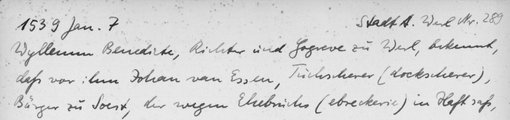 1539 Jan. 7 Stadt A. Werl Nr. 289
Wyllemm Benedicte, Richter und Gogreve zu Werl, bekennt,
daß vor ihm Johan van Essen, Tuchscherer (dockscherer),
Bürger zu Soest, der wegen Ehebruchs (ebreckerie) in Haft saß,